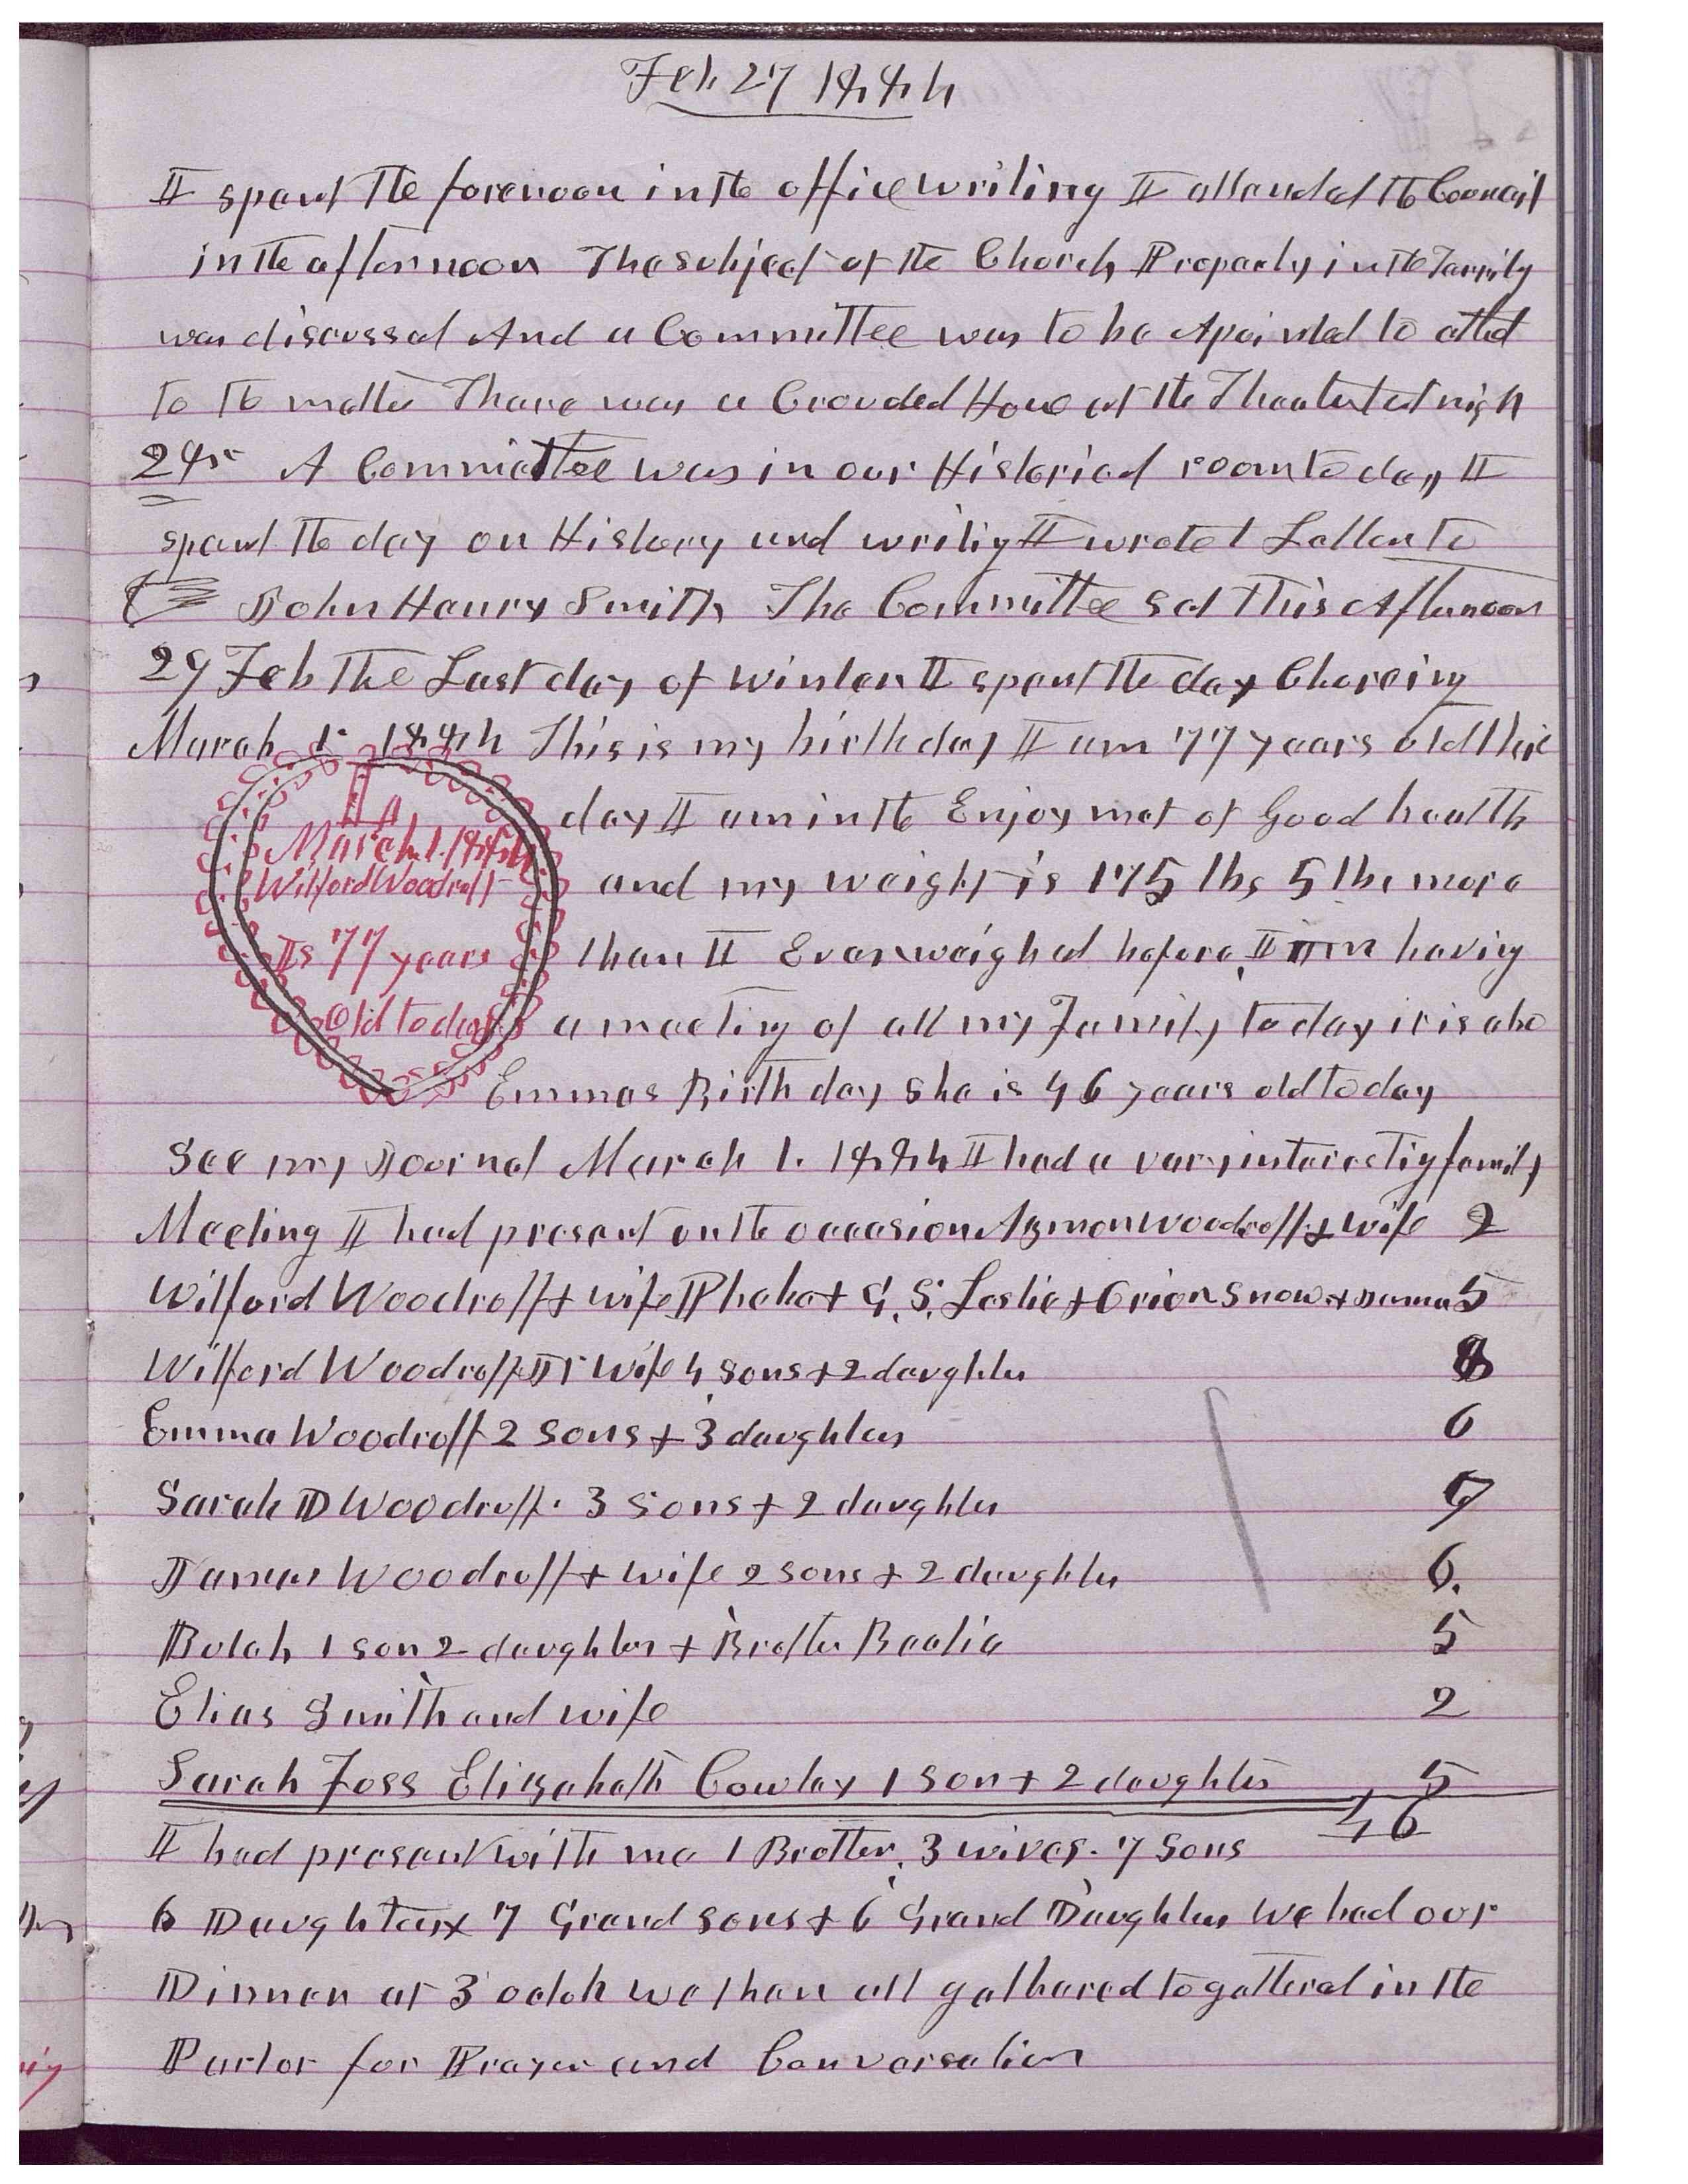 Feb 27 1884
I spent the forenoon in the office writing I attended the Council
in the afternoon The subject of the Church Property in the Family
was discussed And a Committee was to be Apointed to atted
to the matter Thare was a Crouded House at the Theater at nigh
28 A Committee was in our Historical room to day I
spent the day on History and writig I wrote 1 Letter to
John Henry Smith The Committee sat this Afternoon
29 Feb The Last day of winter I spent the day Choreing
March 1 1884 This is my birth day I am 77 years old this
March 1. 1884
Wilford Woodruff
Is 77 years
Old to day
day I am in the Enjoymet of Good health
and my weight is 175 lbs 5 lbs more
than I Ever weighed before, I am having
a meeting of all my Family to day it is also
Emmas Birth day She is 46 years old to day
See my Journal March 1. 1884 I had a very interestig family
Meeting I had present on the occasion Azmon Woodruff & wife 2
Wilford Woodruff & wife Phebe & G. S. Leslie & Orion Snow & 5
Wilford Woodruff Jr wife 4 sons & 2 daughters 8
Emma Woodruff 2 Sons & 3 daughters 6
Sarah D Woodruff. 3 sons & 2 daughters
James Woodruff & wife 2 sons & 2 daughters 6.
Bulah 1 son 2 daughters & Brother Beatie 5
Elias Smith and wife 2
Sarah Foss Elizabeth Cowley 1 son & 2 daughters 5
46
I had present with me 1 Brother, 3 wives. 7 Sons
6 Daughters 7 Grand sons & 6 Grand Daughters We had our
Dinner at 3 oclok we then all gathered togattered in the
Parlor for Prayer and Conversation